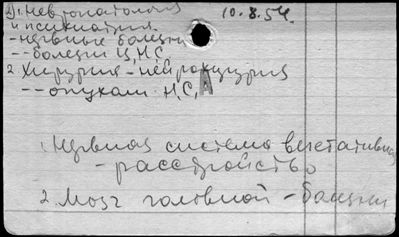 А) 1. Невропатология 10.8.54.
и психиатрия.
- нервные болезни
-- болезни Ц.Н.С.
2 Хирургия - нейрохирургия
-- опухоли Н.С. А
1. Нервная система вегетативная
- расстройство
2. Мозг головной - болезни